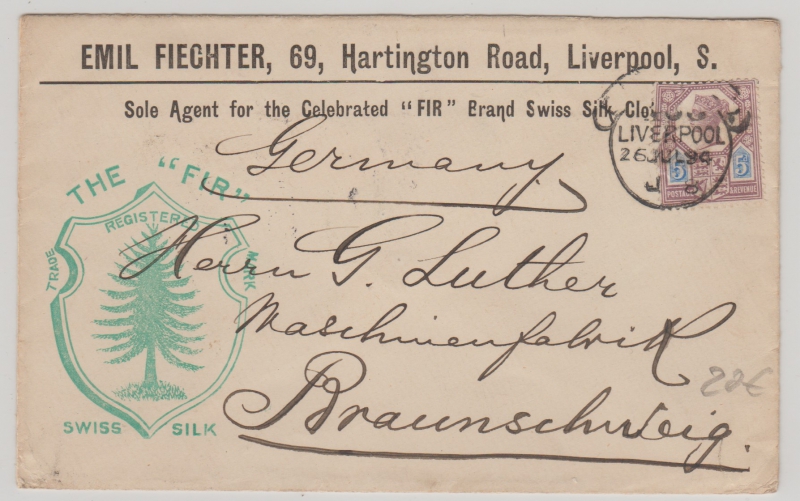 EMIL FIECHTER, 69, Hartington Road, Liverpool, S.
Sole Agent for the Celebrated "FIR" Brand Swiss Silk
LIVERPOOL
26 JUL 94
5D 5D
POSTAGE & REVENUE
Germany
THE "FIR"
REGISTERED
TRADE MARK
SWISS SILK
Herrn G. Luther
Maschinenfabrik
Braunschweig.
22€